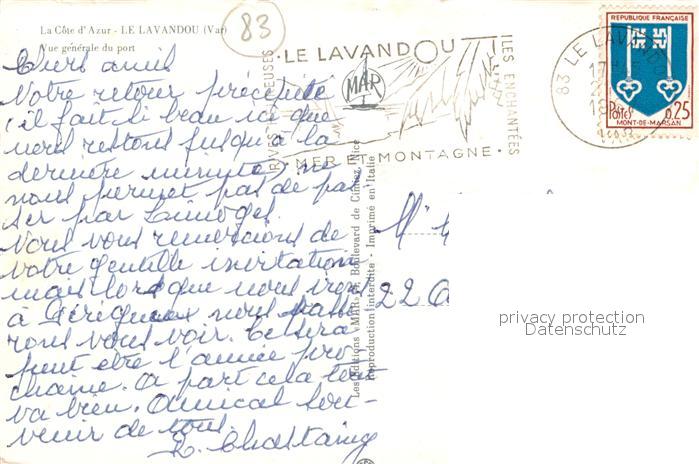 La Côte d'Azur - LE LAVANDOU (Var)
Vue générale du port
83
Chers amis
Votre retour précipité
( il fait si beau ici que
nous restons jusqu'à la
dernière minute) ne
nous permet pas de pas
ser par Limoges.
Nous vous remercions de
votre gentille invitation
mais lorsque nous irons
à Périgueux nous passe
rons vous voir. Ce sera
peut être l'année pro
chaine. A part cela tout
va bien. Amical sou-
venir de tous.
R. Chastaing
RIVES HEUREUSES
LE LAVANDOU
ILES ENCHANTÉES
MAR
MER ET MONTAGNE
83 LE LAVANDOU
VAR
REPUBLIQUE FRANÇAISE
Postes 0,25
MONT-DE-MARSAN
Les Editions «MAR» Boulevard de Cimiez, Nice
Reproduction interdite - Imprimé en Italie
M
22
privacy protection
Datenschutz